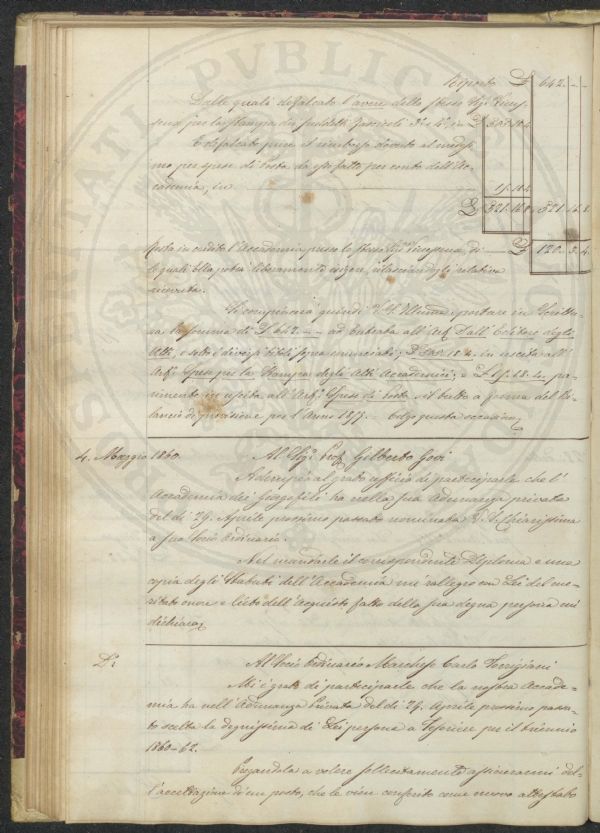 Riporto £ 642. - -
Dalle quali defalcato l'avere dello stesso Sigr
per la stampa dei suddetti fascicoli 3° e 4° in £
E defalcato pure il rimborso dovuto al medes-
mo per spese di Posta da esso fatte per conto dell'Ac-
cademia, in
£ 521. 16. 8
Resta in credito l'Accademia presso lo stesso Sigr di £ 120. 3. 4.
le quali Ella potrà liberamente esigere, rilasciandogli relativa
ricevuta.
Si compiacerà quindi V.S. Illma portare in Scrittu-
ra la somma di £ 642. - - ad Entrata all'Art. Dall'Editore degli
Atti, e sotto i diversi titoli sopra enunciati; in uscita all'
Art. Spese per la Stampa degli Atti Accademici; e pa-
rimente in uscita all'Art. Spese di Posta. Il tutto a forma del Bi-
lancio di previsione per l'Anno Colgo questa occasione
4. Maggio 1860. Al Sigr Prof. Gilberto Govi
Adempio al grato ufficio di parteciparle che l'
Accademia dei Georgofili ha nella sua Adunanza privata
del dì 29. Aprile prossimo passato nominata V.S. Chiarissima
a suo Socio Ordinario.
Nel mandarle il corrispondente Diploma e una
copia degli Statuti dell'Accademia mi rallegro con Lei del me-
ritato onore e lieto dell'Acquisto fatto della sua degna persona mi
dichiaro
D° Al Socio Ordinario Marchese Carlo Torrigiani
Mi è grato di parteciparle che la nostra Accade-
mia ha nell'Adunanza Privata del dì 29. Aprile prossimo passa-
to scelta la degnissima di Lei persona a Tesoriere per il triennio
1860-62.
Pregandola a volere sollecitamente assicurarmi del-
l'accettazione di un posto, che le vien conferito come nuovo attestato